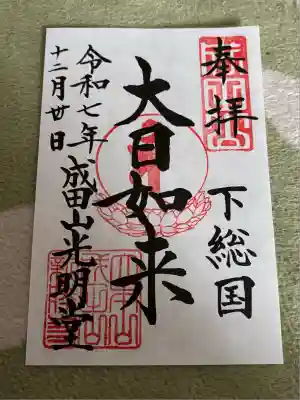 奉拝
下総国
大日如来
令和七年
十二月廿日
成田山光明堂